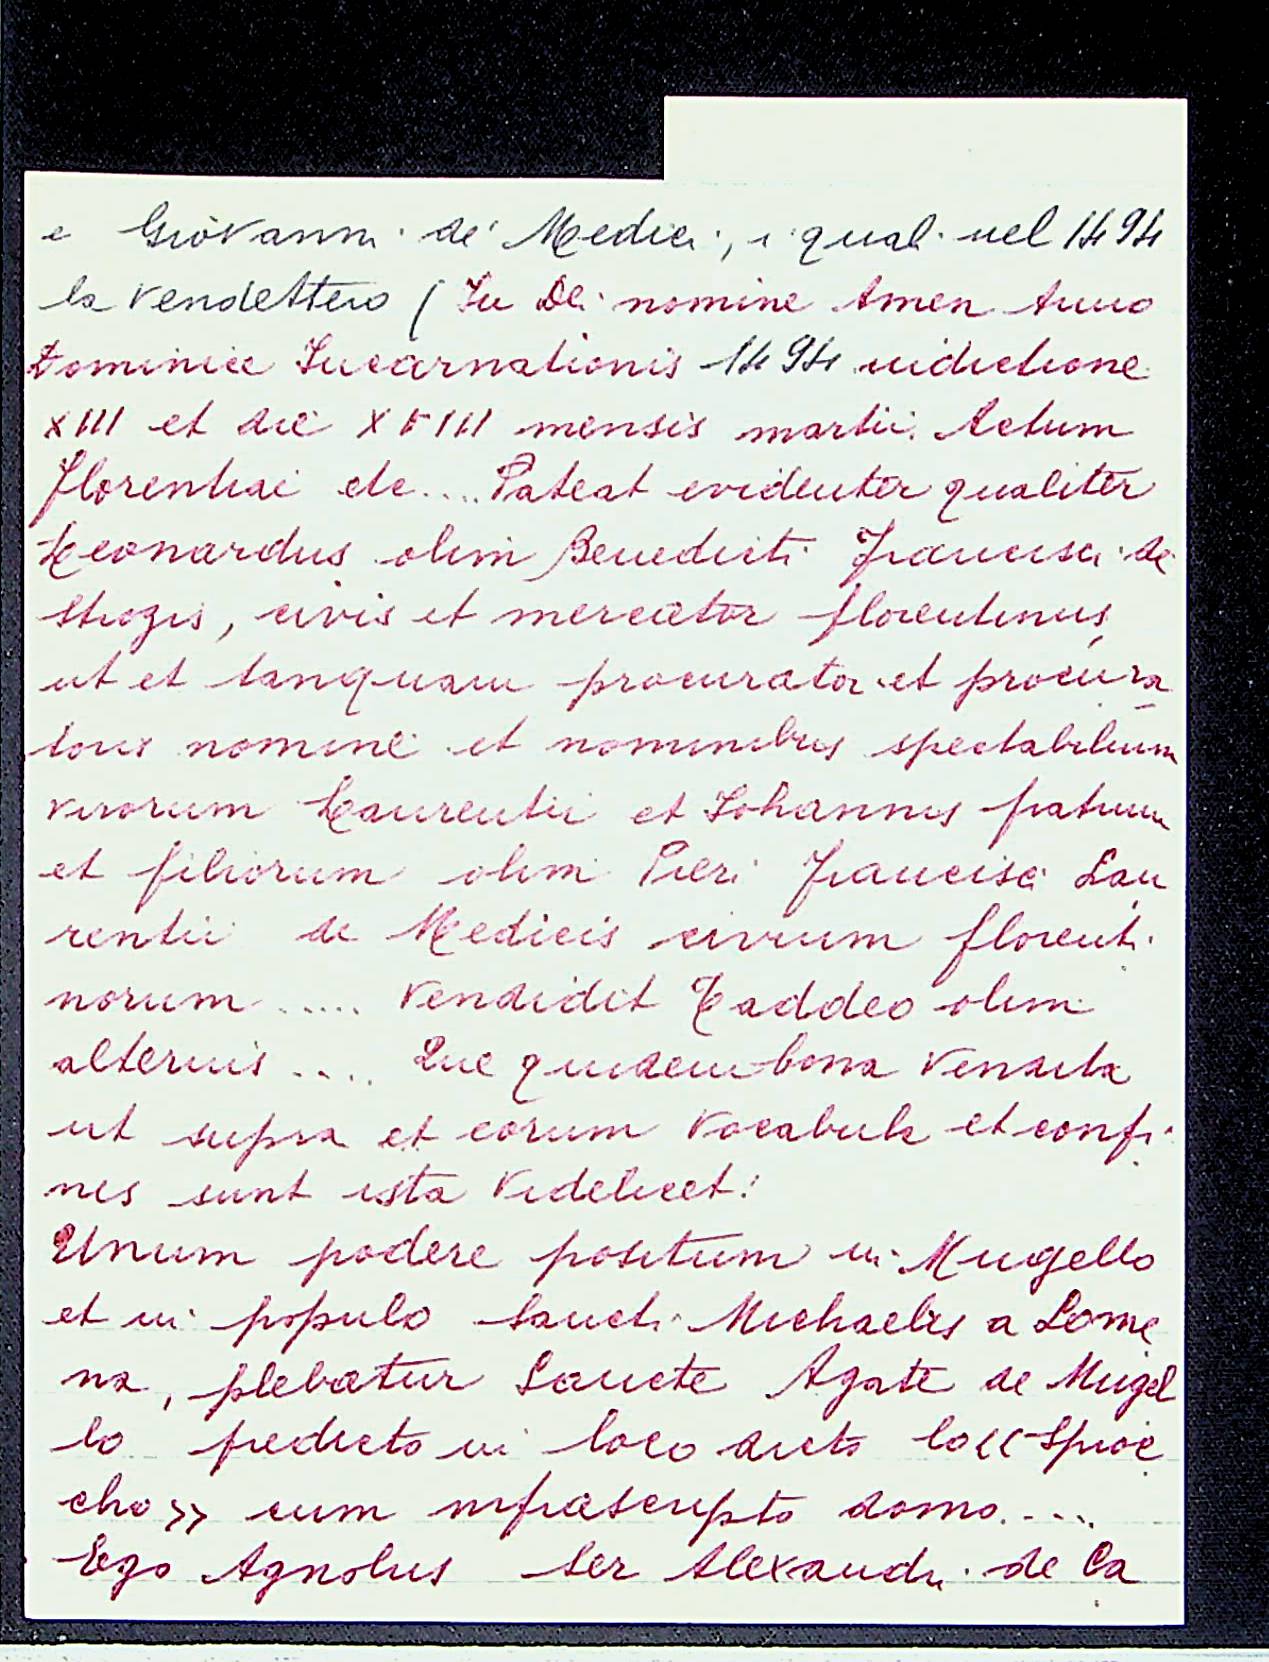 e Giovanni de' Medici, i quali nel 1494
la vendettero (In Dei nomine Amen Anno
Dominice Incarnationis 1494 indictione
XIII et die XVIII mensis martii. Actum
Florentiai etc.... Pateat evidenter qualiter
Leonardus olim Benedicti Francisci de
Strozis, civis et mercator florentinus,
ut et tanquam procurator et procura
torio nomine et nominibus spectabilium
virorum Laurentii et Iohannis fratrum
et filiorum olim Pieri Francisci Lau
rentii de Medicis civium florenti
norum ..... vendidit Taddeo olim
alterius .... Que quidem bona vendita
ut supra et eorum vocabula et confi
nes sunt ista videlicet:
Unum podere positum in Mugello
et in populo Sancti Michaelis a Lome
na, plebatur Sancte Agate de Mugel
lo predicto in loco dicto lo <<
cho >> cum infrascripto domo.....
Ego Agnolus Ser Alexandri de Ca